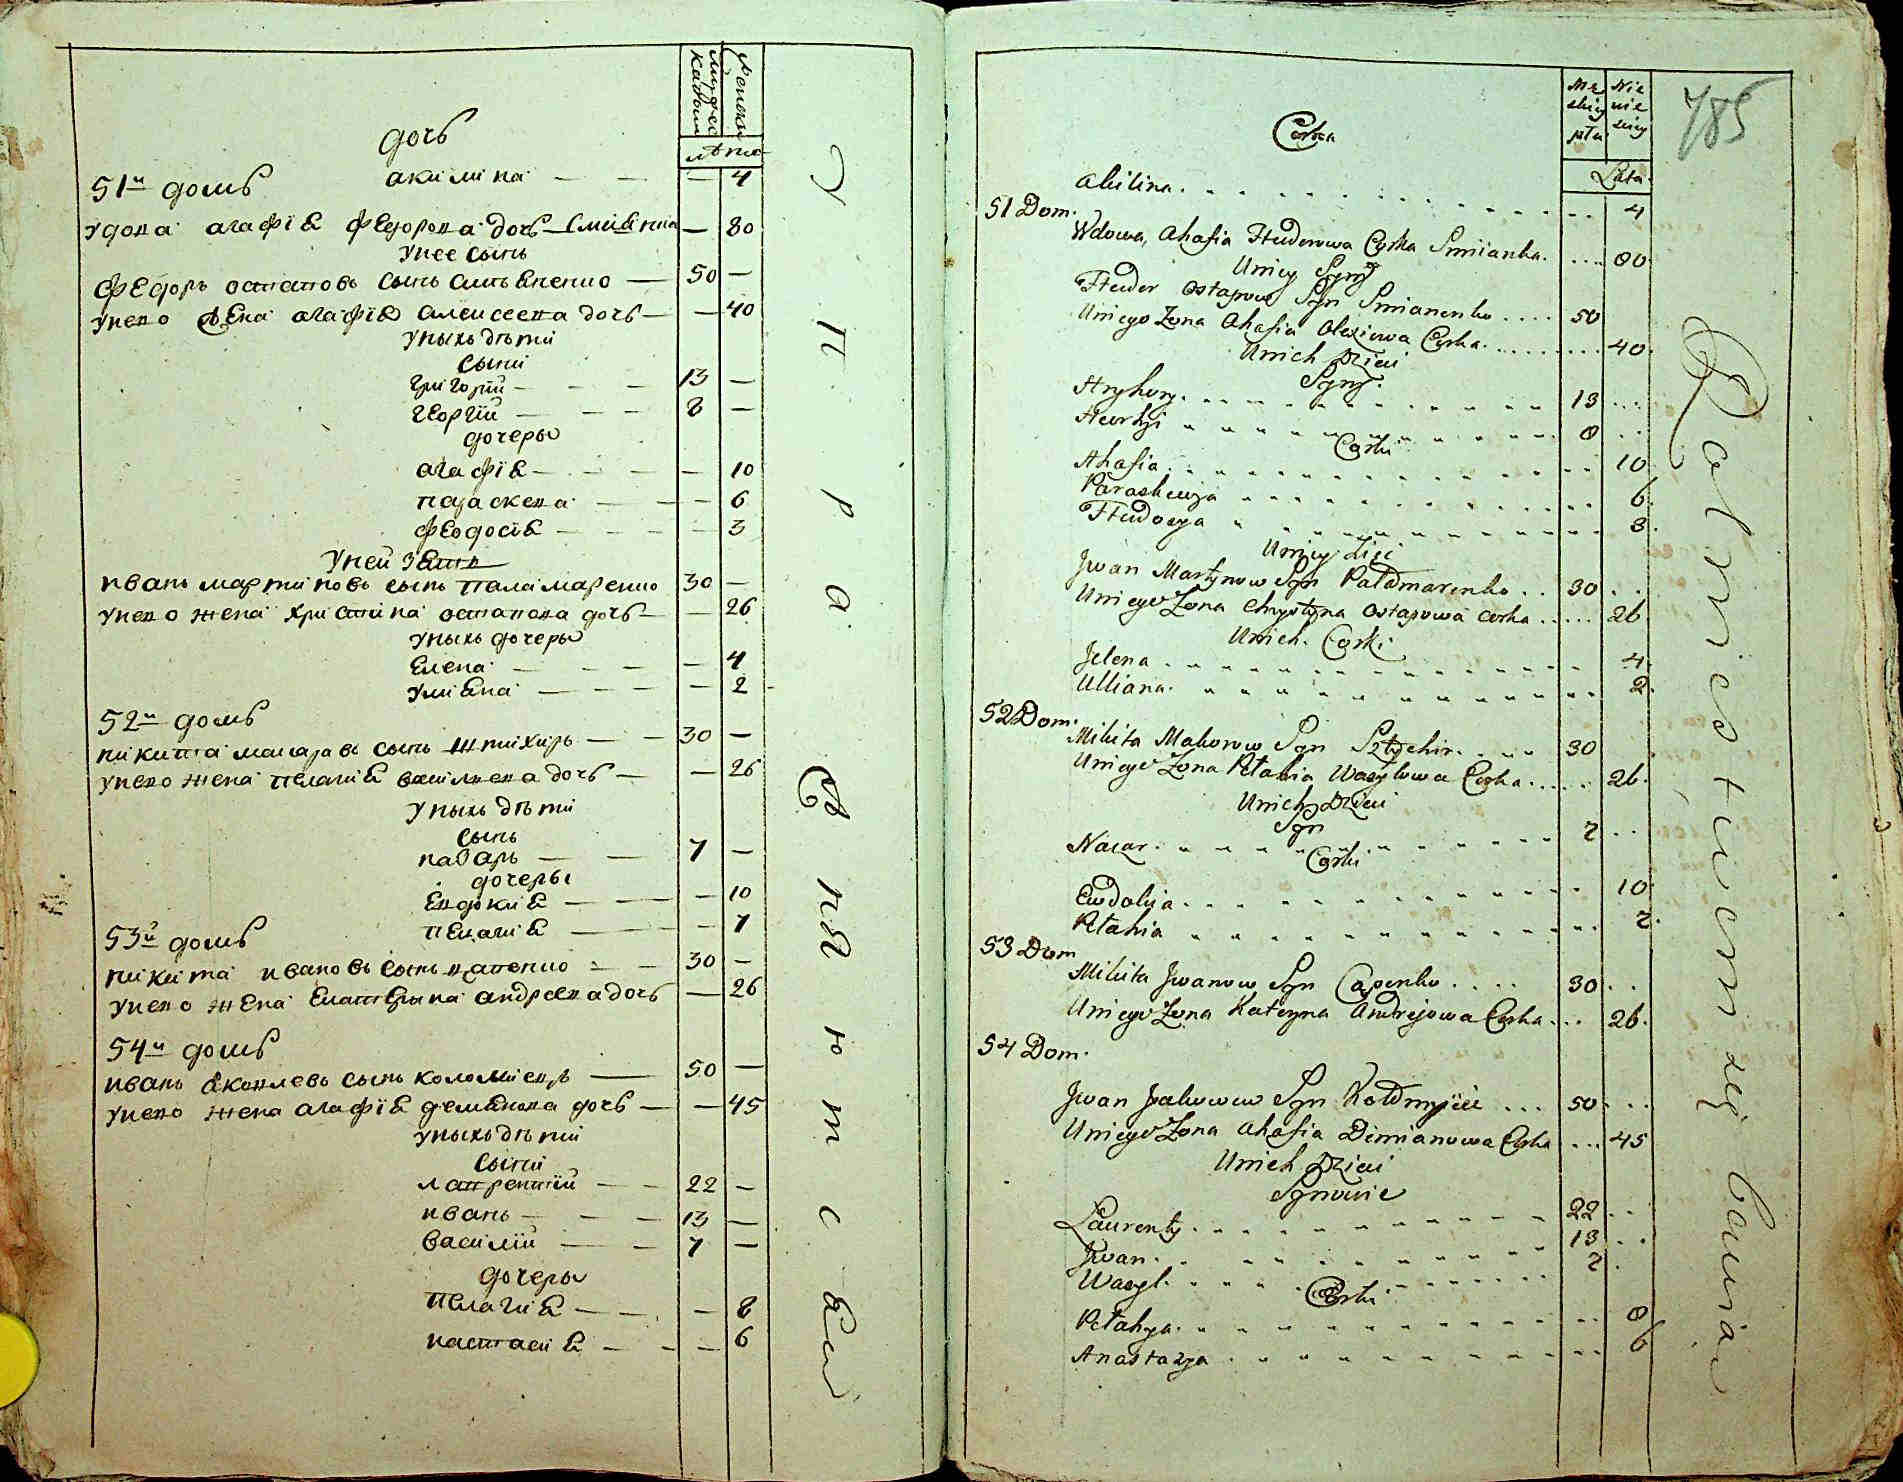 Мужеска
Женска
лѣта
дочь
акилина — — — 4
51й домъ
удова агафія федорова дочь Сміянка — 80
унее сынъ
федоръ остаповъ сынъ сміяненко — 50 —
унево жена агафія алексеева дочь — — 40
уныхъ дѣти
сыни
григорій — — — 13 —
георгій — — — 8 —
дочеры
агафія — — — 10
параскева — — — 6
феодосія — — — 3
уней зять
иванъ мартиновъ сынъ паламаренко 30 —
унево жена христина остапова дочь — — 26
уныхъ дочеры
елена — — — 4
уліяна — — — 2
52й домъ
никита макаровъ сынъ штихиръ — — 30 —
унево жена пелагія василиева дочь — — 26
уныхъ дѣти
сынъ
назаръ — — 7 —
дочеры
евдокия — — — 10
пелагия — — — 7
53й домъ
никита ивановъ сынъ цапенко — — 30 —
унево жена екатерина андреева дочь — 26
54й домъ
иванъ яковлевъ сынъ коломіецъ — 50 —
унево жена агафія демянова дочь — — 45
уныхъ дѣти
сыни
лаврентій — — 22 —
иванъ — — — 13 —
василій — — 7 —
дочеры
пелагия — — — 8
настасия — — — 6
упражняются
785
Męskiey płci
Niewieściey
Lata
Corka
Akilina . . . . 4
51 Dom.
Wdowa, Ahafia Fiudorowa Corka Smiianka. . . . . 80
Uniey Syn
Fiudor Ostapow Syn Smianenko . . . . 50
Uniego Zona Ahafia Olexiowa Corka . . . . 40.
Unich Dzieci
Syny.
Hryhory . . . . 13 . . .
Heorhji . . . . 8 . .
Corki
Ahafia . . . . 10
Paraskewja . . . . 6.
Fiudosya . . . . 3.
Uniey Zięć
Jwan Martynow Syn Pałamarenko . . 30 . .
Uniego Zona Chrystyna Ostapowa corka . . . . . 26
Unich. Corki
Jelena . . . . 4.
Ulliana . . . . 2.
52 Dom.
Mikita Makorow Syn Sztychir . . . . 30
Uniego Zona Pełahia Wasylowa Corka . . . . 26.
Unich Dzieci
Syn
Nazar . . . . 7 . .
Corki
Ewdokija . . . . 10.
Pełahia . . . . 7.
53 Dom
Mikita Jwanow Syn Capenko . . . . 30 . .
Uniego Zona Kateryna Andrejowa Corka . . . 26.
54 Dom.
Jwan Jakowow Syn Kołomyiec . . . 50 . . .
Uniego Zona Ahafia Dimianowa Corka . . . 45
Unich Dzieci
Synowie
Laurenty . . . . 22 . .
Jwan . . . . 13 . .
Wasyl . . . . 7 .
Corki
Pełahya . . . . 8
Anastazya . . . . 6
Rolnictwem się bawią